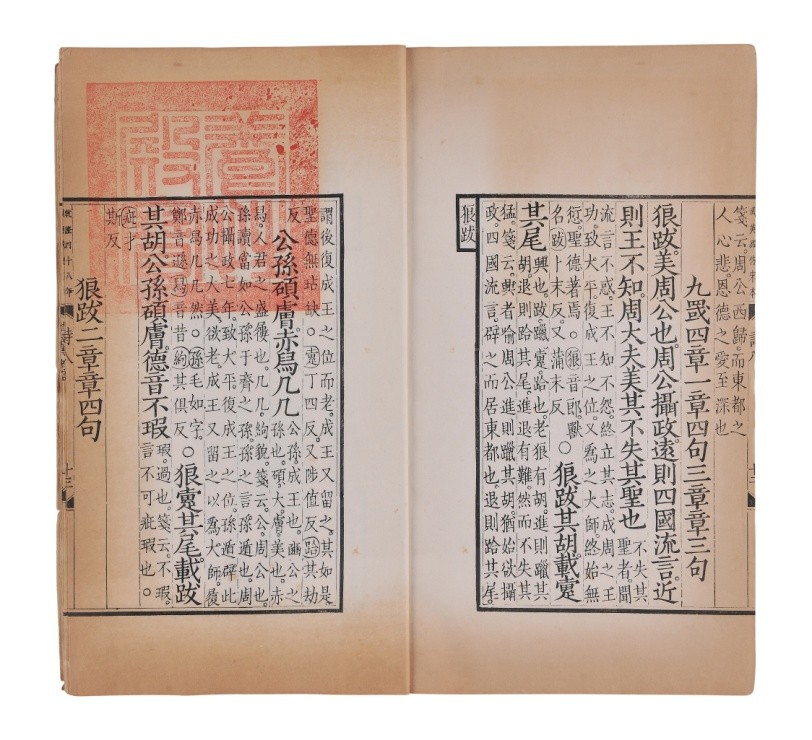 箋云。周公西歸。而東都之
人心悲。恩德之愛至深也
九罭四章一章四句三章章三句
狼跋。美周公也。周公攝政。遠則四國流言。近
則王不知。周大夫美其不失其聖也
不失其
聖者。聞
流言不惑。王不知不怨。終立其志。成周之王
功。致大平。復成王之位。又爲之大師。終始無
愆。聖德著焉。○狼音郎。獸
名。跋卜末反。又蒲末反
○狼跋其胡。載疐
其尾
興也。跋。躐。疐。跲也。老狼有胡。進則躐其
胡。退則跲其尾。進退有難。然而不失其
猛。箋云。興者。喻周公進則躐其胡。猶始欲攝
政。四國流言。辟之而居東都也。退則跲其尾。
狼跋
謂後復成王之位而老。成王又留之。其如是
聖德無玷缺。○疐丁四反。又陟值反。跲其劫
反
公孫碩膚。赤舄几几
公孫。成王也。豳公之
孫也。碩。大。膚。美也。赤
舄。人君之盛屨也。几几。絇貌。箋云。公。周公也。
孫讀當如公孫于齊之孫。孫之言孫遁也。周
公攝政七年。致大平。復成王之位。孫遁辟此
成功之大美。欲老。成王又留之。以爲大師。履
赤舄几几然。○孫毛如字。
鄭音遜。舄音昔。絇其俱反
○狼疐其尾。載跋
其胡。公孫碩膚。德音不瑕
瑕。過也。箋云。不瑕。
言不可疵瑕也。○
疵才
斯反
狼跋二章章四句
十三